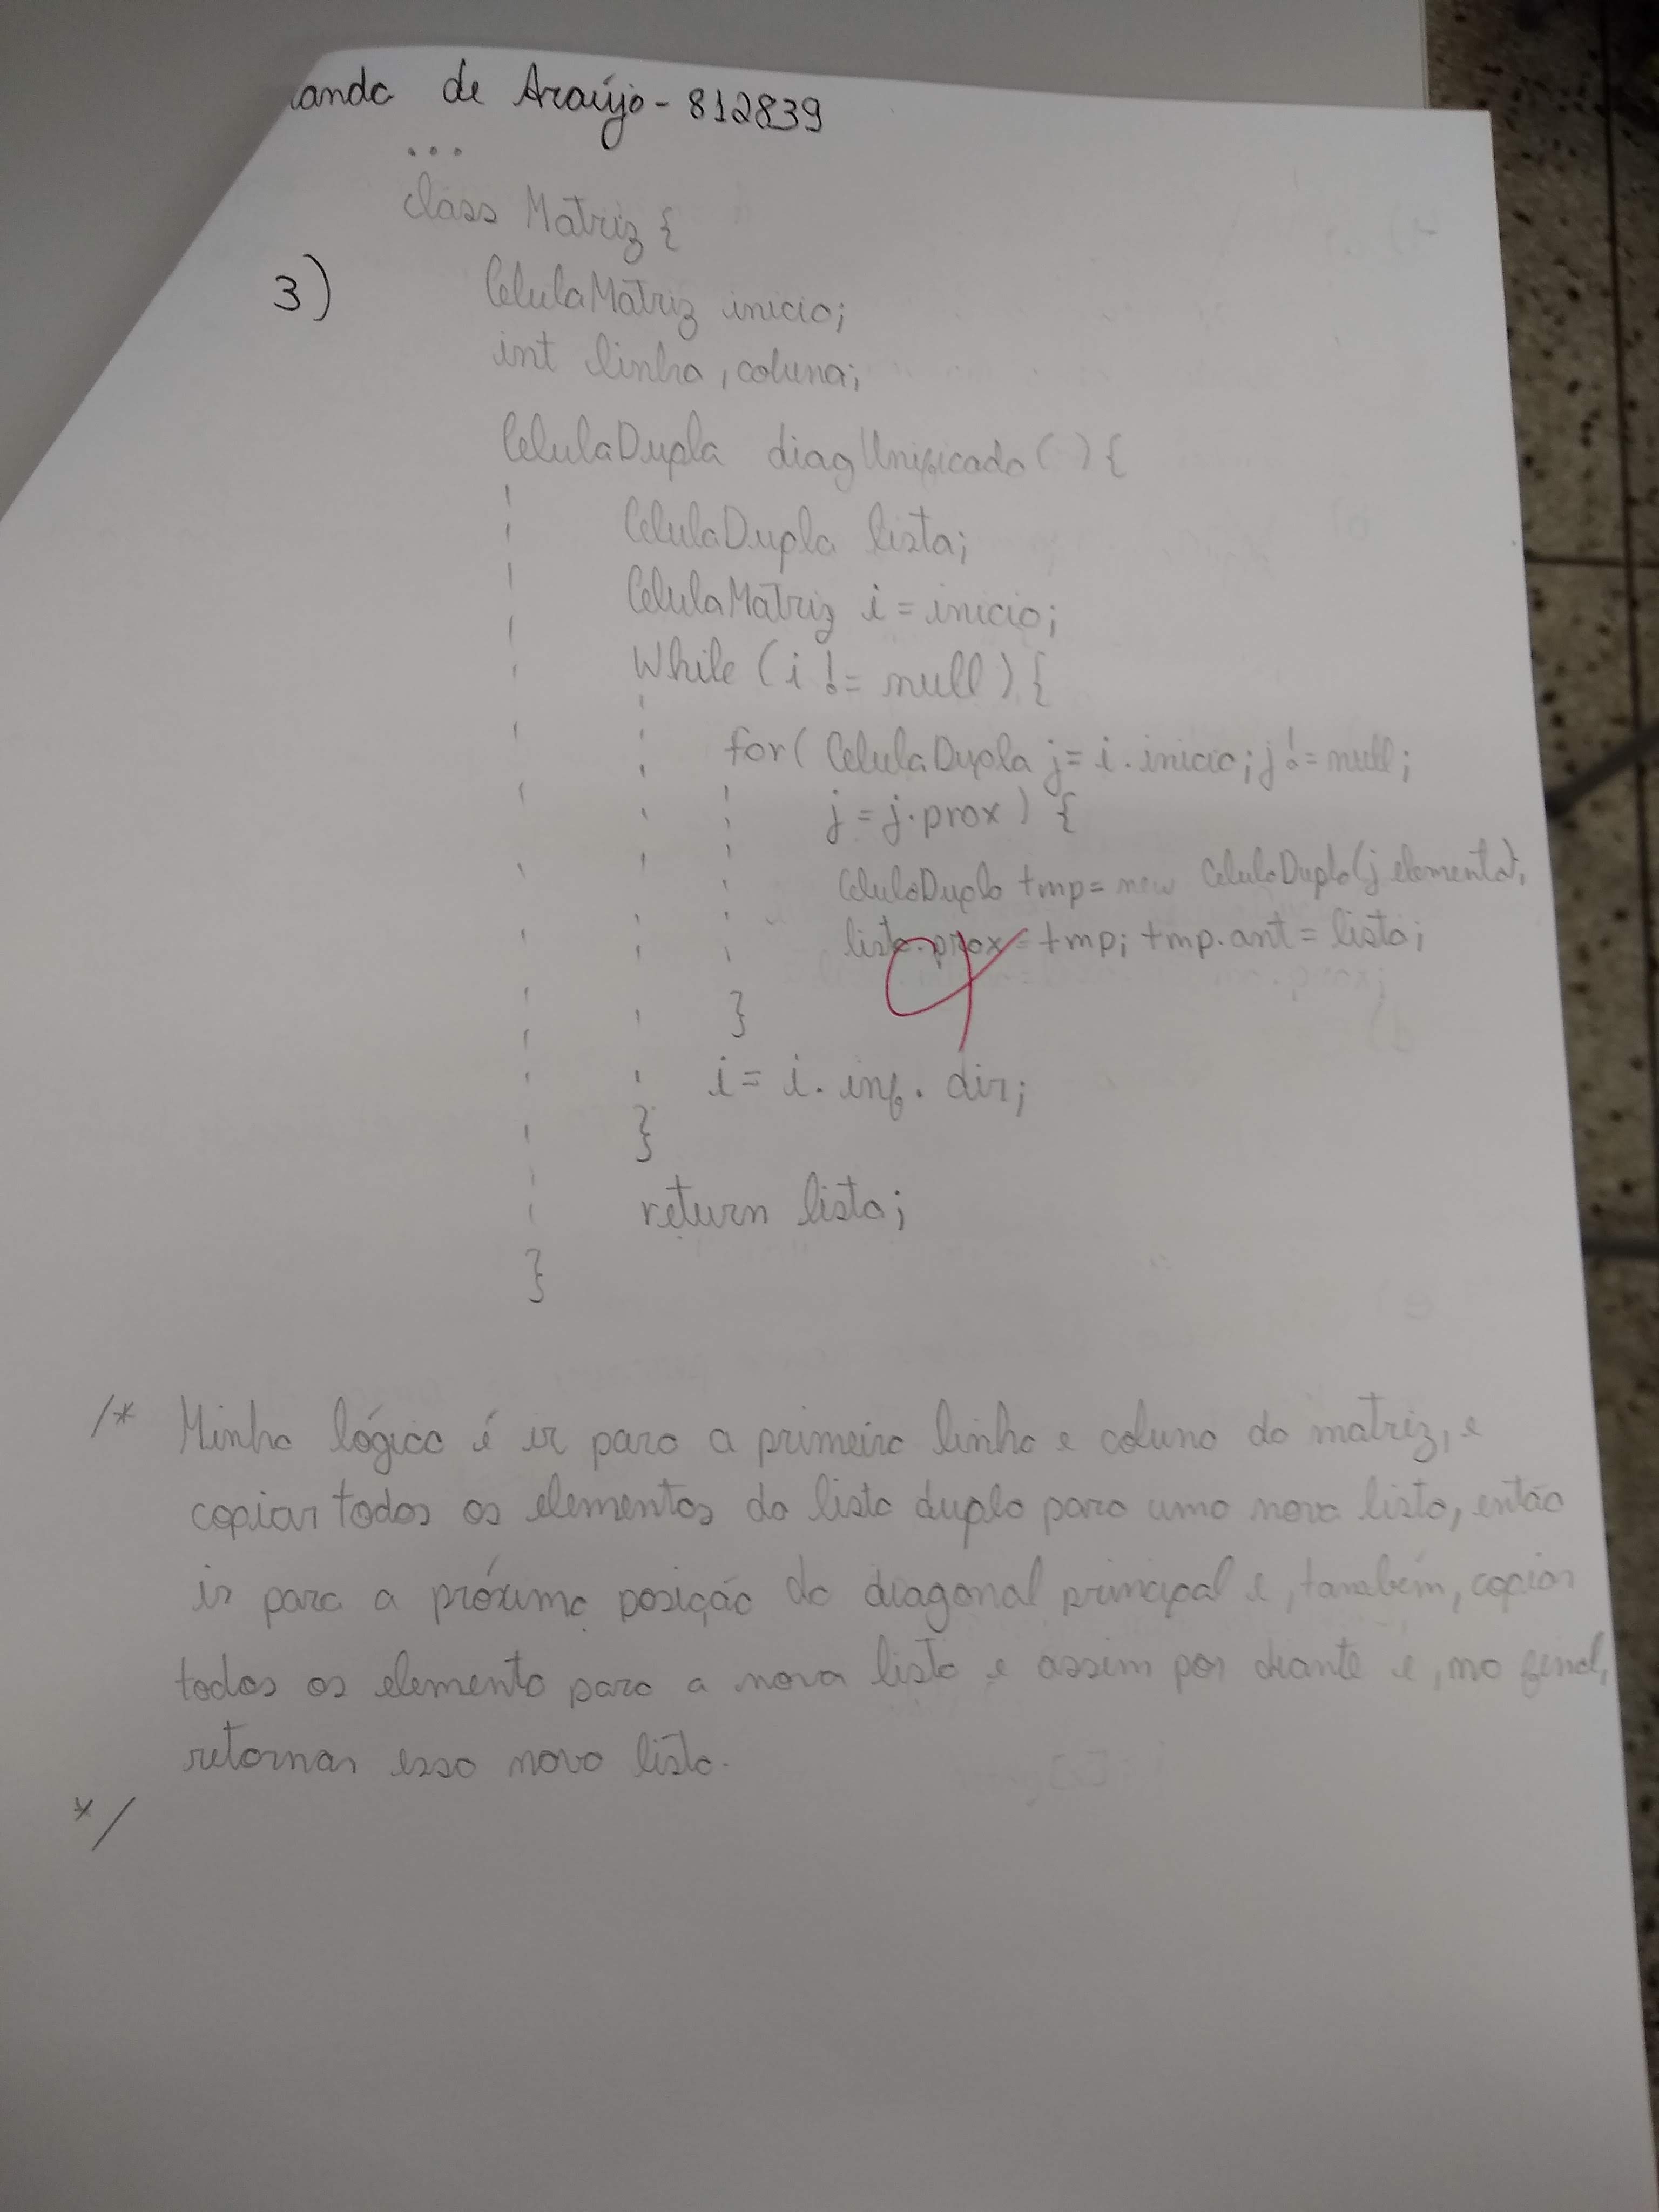 de Araújo - 812839
...
class Matriz {
3) CelulaMatriz inicio;
int linha, coluna;
CelulaDupla diagUnificada() {
CelulaDupla lista;
CelulaMatriz i = inicio;
While (i != null) {
for (CelulaDupla j = i.inicio; j != null;
j = j.prox) {
CelulaDupla tmp = new CelulaDupla(j.elemento);
lista.prox = tmp; tmp.ant = lista;
}
i = i.inf.dir;
}
return lista;
}
/* Minha lógica é ir para a primeira linha e coluna da matriz, e
copiar todos os elementos da lista dupla para uma nova lista, então
ir para a próxima posição da diagonal principal e, também, copiar
todos os elemento para a nova lista e assim por diante e, no final,
retornar essa nova lista.
*/